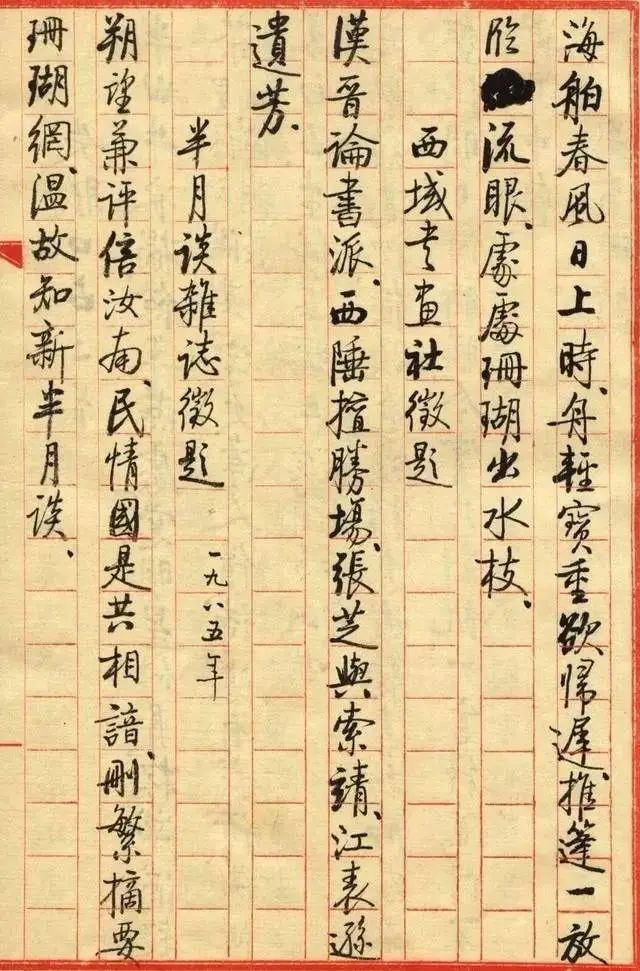 海舶春風日上時、舟輕寶重欲歸遲、推篷一放
臨流眼、處處珊瑚出水枝、
西域書畫社徵題
漢晉論書派、西陲擅勝場、張芝與索靖、江表遜
遺芳、
半月談雜誌徵題 一九八五年
朔望兼評倍汝南、民情國是共相諳、刪繁摘要
珊瑚網、溫故知新半月談、